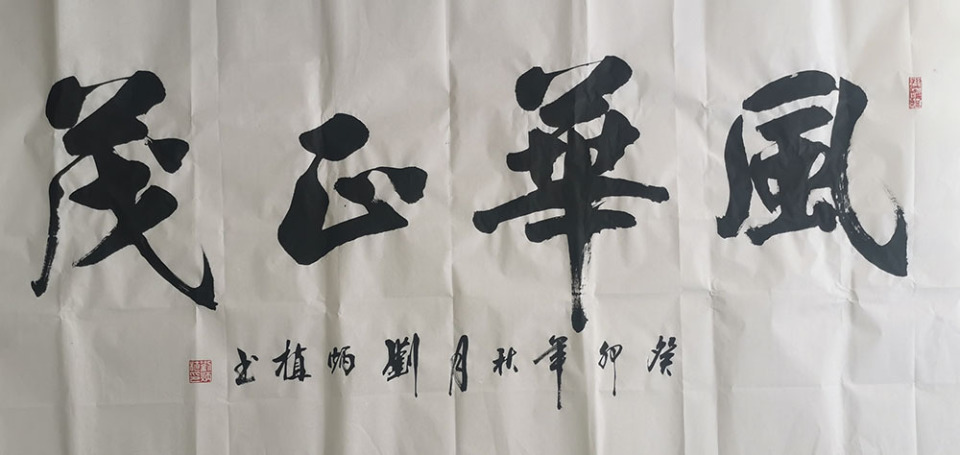 風華正茂
癸卯年秋月劉炳植书